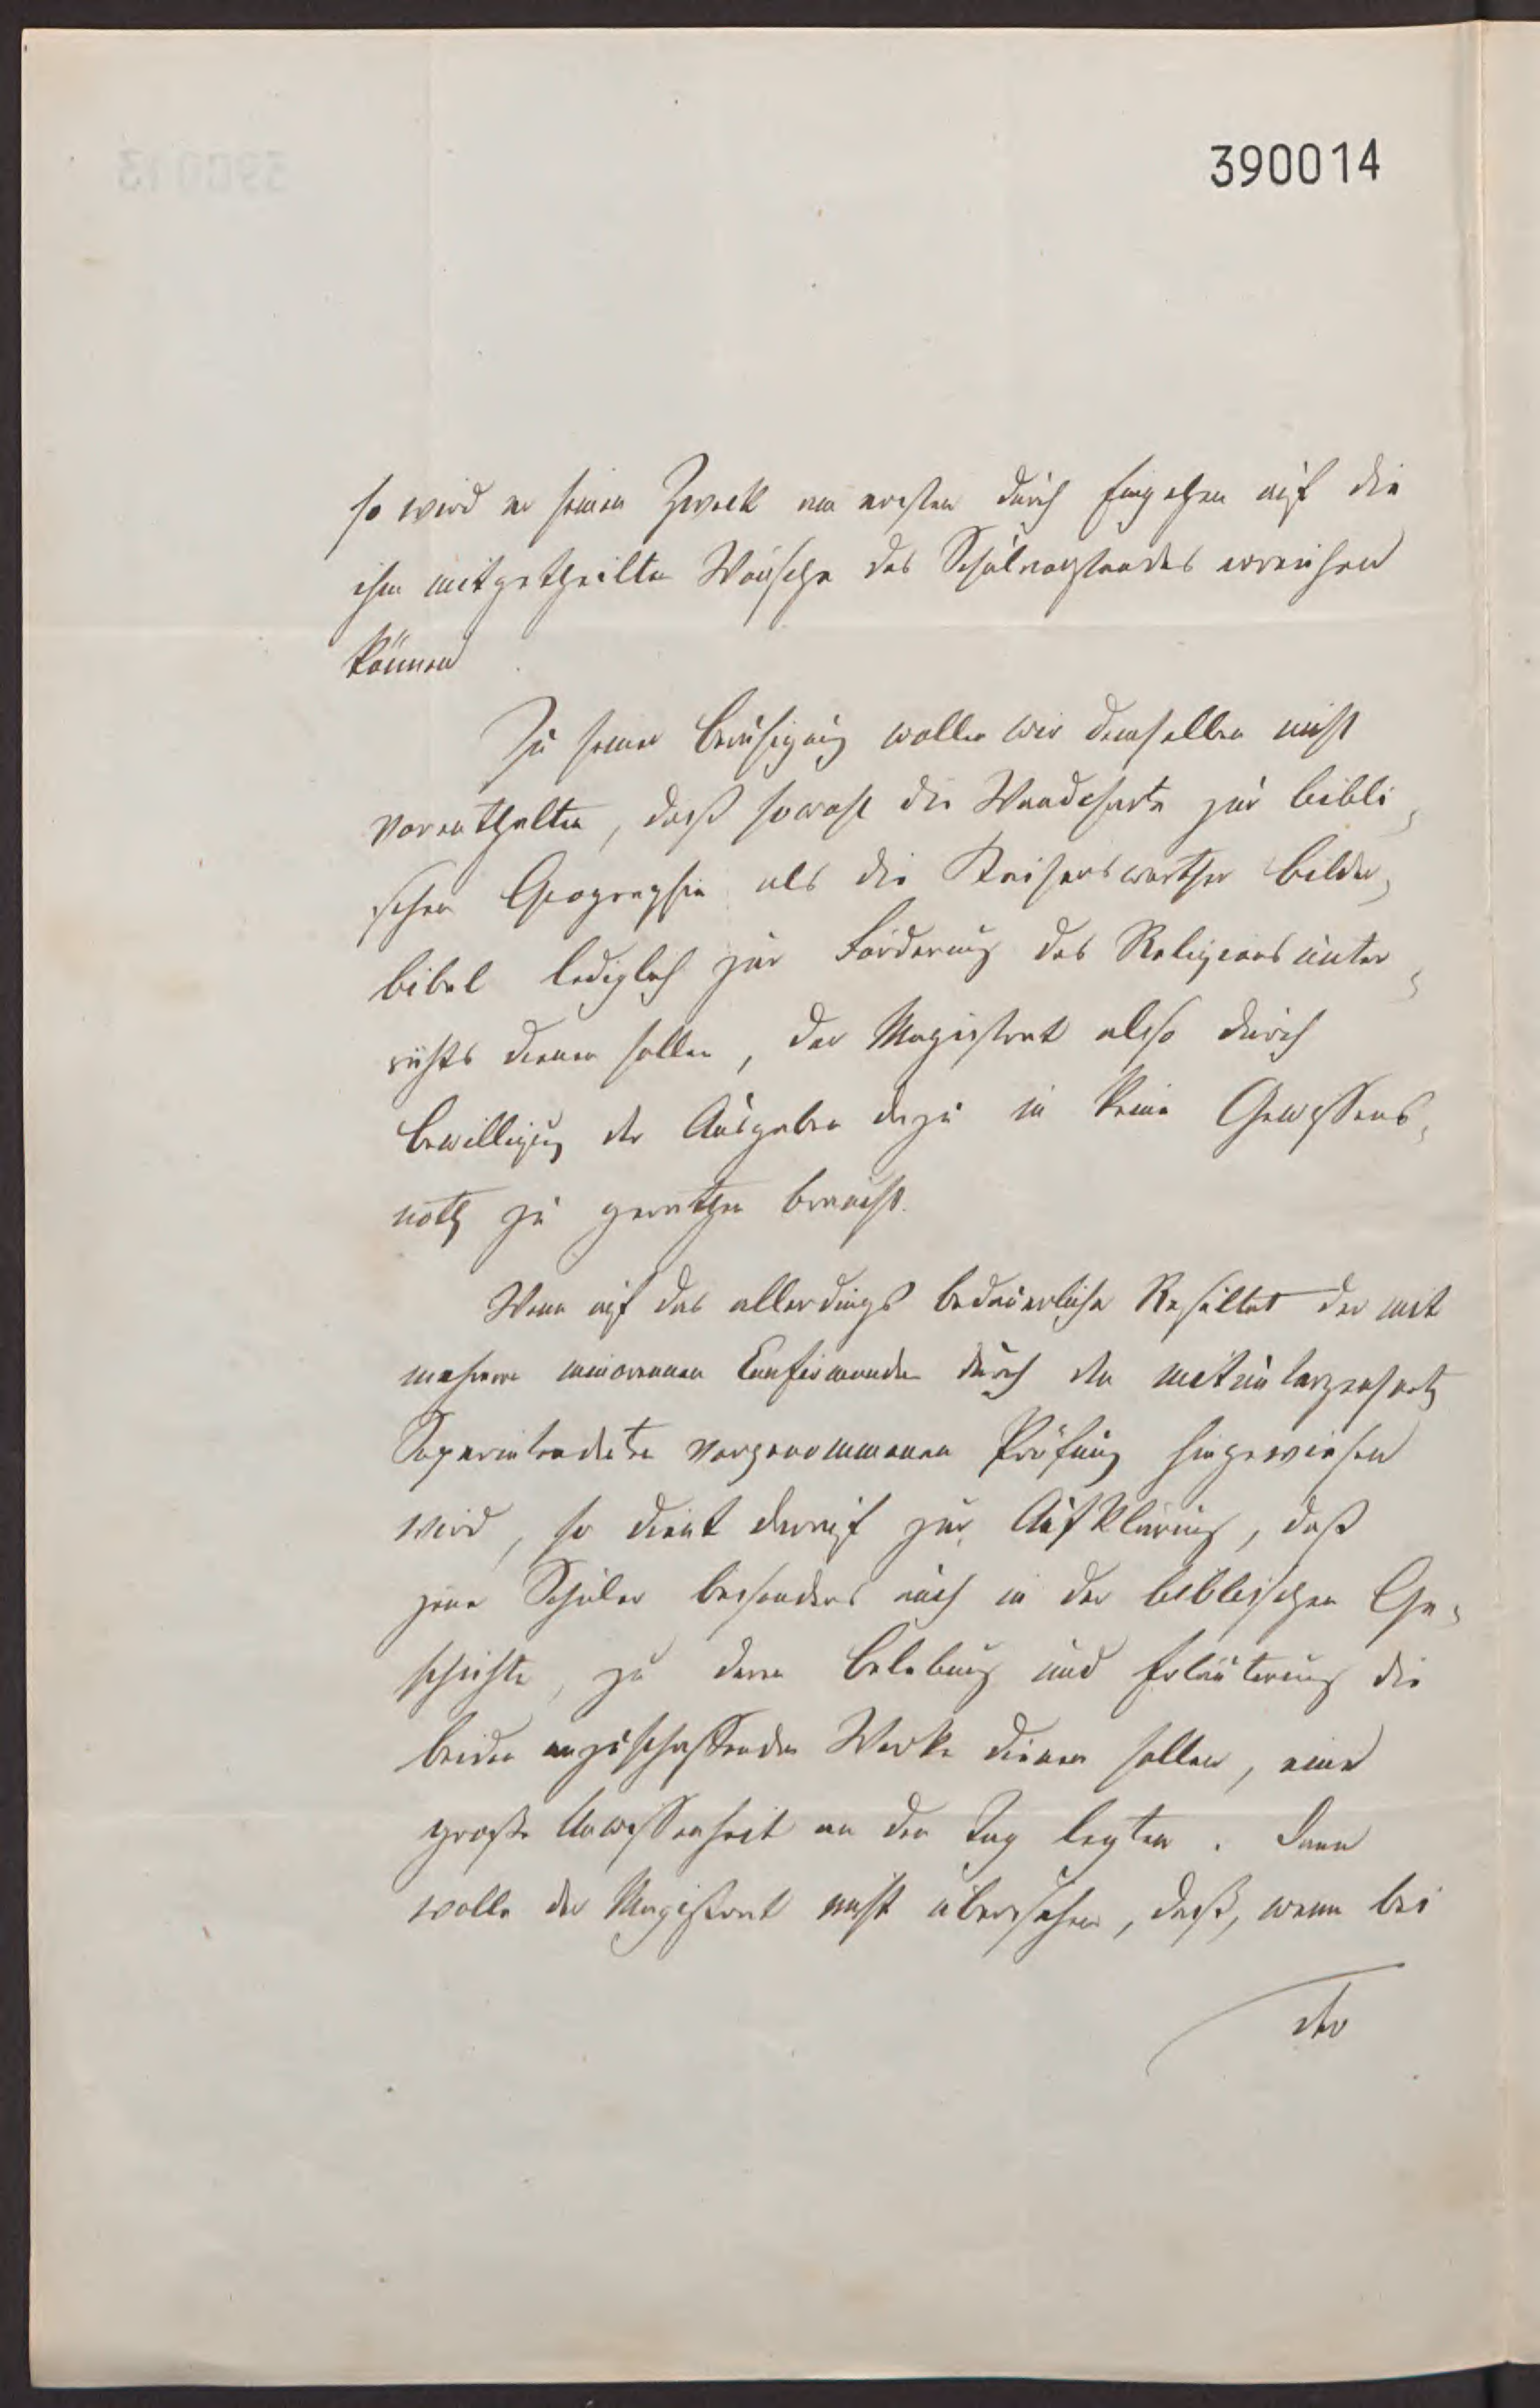 390014
so wird er seinen Zweck am ersten durch Eingehen auf die
ihm mitgetheilten Wünsche des Schulvorstandes erreichen
können
Zu seiner Beruhigung wollen wir demselben nicht
vorenthalten, daß sowohl die Wandcharte zur bibli-
schen Geographie als die Kaiserswerther Bilder-
bibel lediglich zur Förderung des Religionsunter-
richts dienen sollen, der Magistrat also durch
Bewilligung der Ausgaben dazu in keine Gewissens-
noth zu gerathen braucht.
Wenn auf das allerdings bedauerliche Resultat der mit
mehrere Confirmanden durch den mitunterzeichnet
Superintendenten vorgenommenen Prüfung hingewiesen
wird, so dient darauf zur Aufklärung, daß
jene Schüler besonders auch in der biblischen Ge-
schichte, zu deren Belebung und Erläuterung die
beiden anzuschaffenden Werke dienen sollen, eine
große Unwissenheit an den Tag legten. Dann
wolle der Magistrat nicht übersehen, daß, wenn bei
der